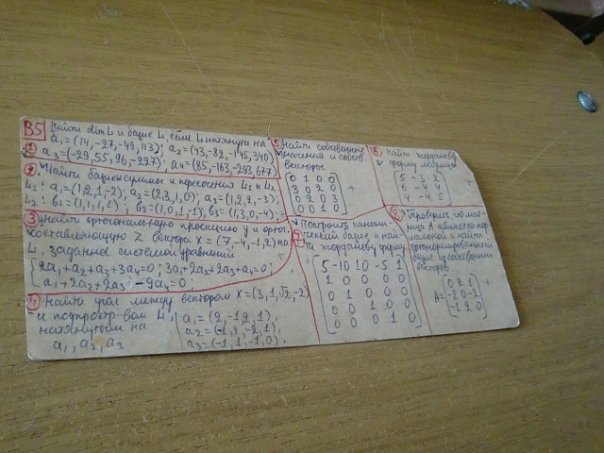 В5 Найти dim L и базис L, если L натянута на
① a₁ = (14, -27, -49, 113); a₂ = (43, -82, -145, 340)
a₃ = (-29, 55, 96, -227), a₄ = (85, -163, -293, 677)
② Найти базисы суммы и пересечения L₁ и L₂
L₁: a₁ = (1,2,1,-2); a₂ = (2,3,1,0); a₃ = (1,2,2,-3);
L₂: b₁ = (1,1,1,1), b₂ = (1,0,1,-1), b₃ = (1,3,0,-4).
③ Найти ортогональную проекцию y и ортог.
составляющую z вектора x = (7,-4,-1,2) на
L, заданное системой уравнений
2a₁+a₂+a₃+3a₄=0; 3a₁+2a₂+2a₃+a₄=0;
a₁+2a₂+2a₃-9a₄=0
④ Найти угол между вектором x = (3,1,√2,-2)
и подпростр-вом L,
натянутым на
a₁, a₂, a₃
a₁ = (2,-1,2,1),
a₂ = (-1,2,-2,1),
a₃ = (-1,1,-1,0).
5 Найти собственные
значения и собств.
векторы
0 1 0 0
3 0 2 0
0 2 0 3
0 0 1 0
+
Найти жорданову
форму матрицы
5 -3 2
6 -4 4
4 -4 5
+
Построить канони-
ческий базис и най-
ти жорданову форму
5 -10 10 -5 1
1 0 0 0 0
0 1 0 0 0
0 0 1 0 0
0 0 0 1 0
⑧ Проверить, что мат-
рица A является нор-
мальной и найти
ортонормированный
базис из собственных
векторов
A =
0 2 1
-2 0 -2
-1 2 0
+